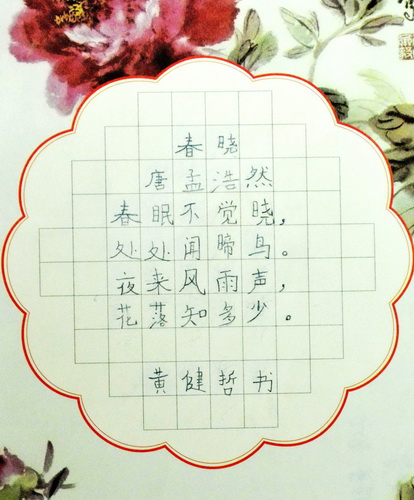 春晓
唐孟浩然
春眠不觉晓，
处处闻啼鸟。
夜来风雨声，
花落知多少。
黄健哲书